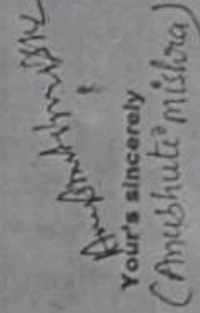 Your's sincerely
(Anubhuti mishra)